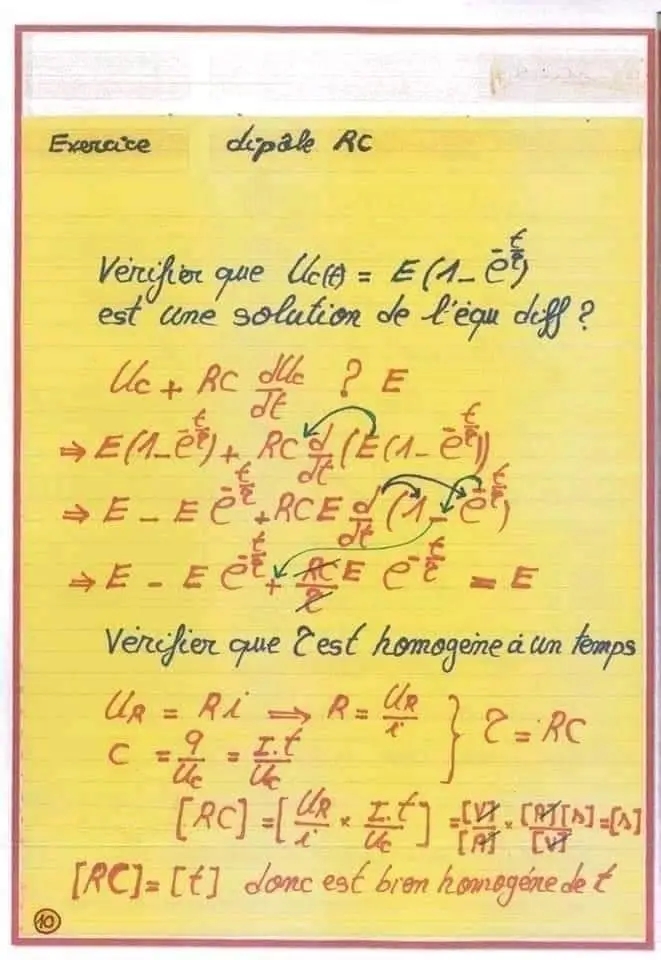 Exercice dipôle RC
Vérifier que Uc(t) = E(1 - e^{-t/τ})
est une solution de l'équ diff ?
Uc + RC dUc/dt ? E
⇒ E(1 - e^{-t/τ}) + RC d/dt (E(1 - e^{-t/τ}))
⇒ E - E e^{-t/τ} + RC E d/dt (1 - e^{-t/τ})
⇒ E - E e^{-t/τ} + RC/τ E e^{-t/τ} = E
Vérifier que τ est homogène à un temps
U_R = R i ⇒ R = U_R/i } τ = RC
C = q/Uc = I.t/Uc
[RC] = [U_R/i × I.t/Uc] = [V]/[A] × [A][s]/[V] = [s]
[RC] = [t] donc est bien homogéne de t
10